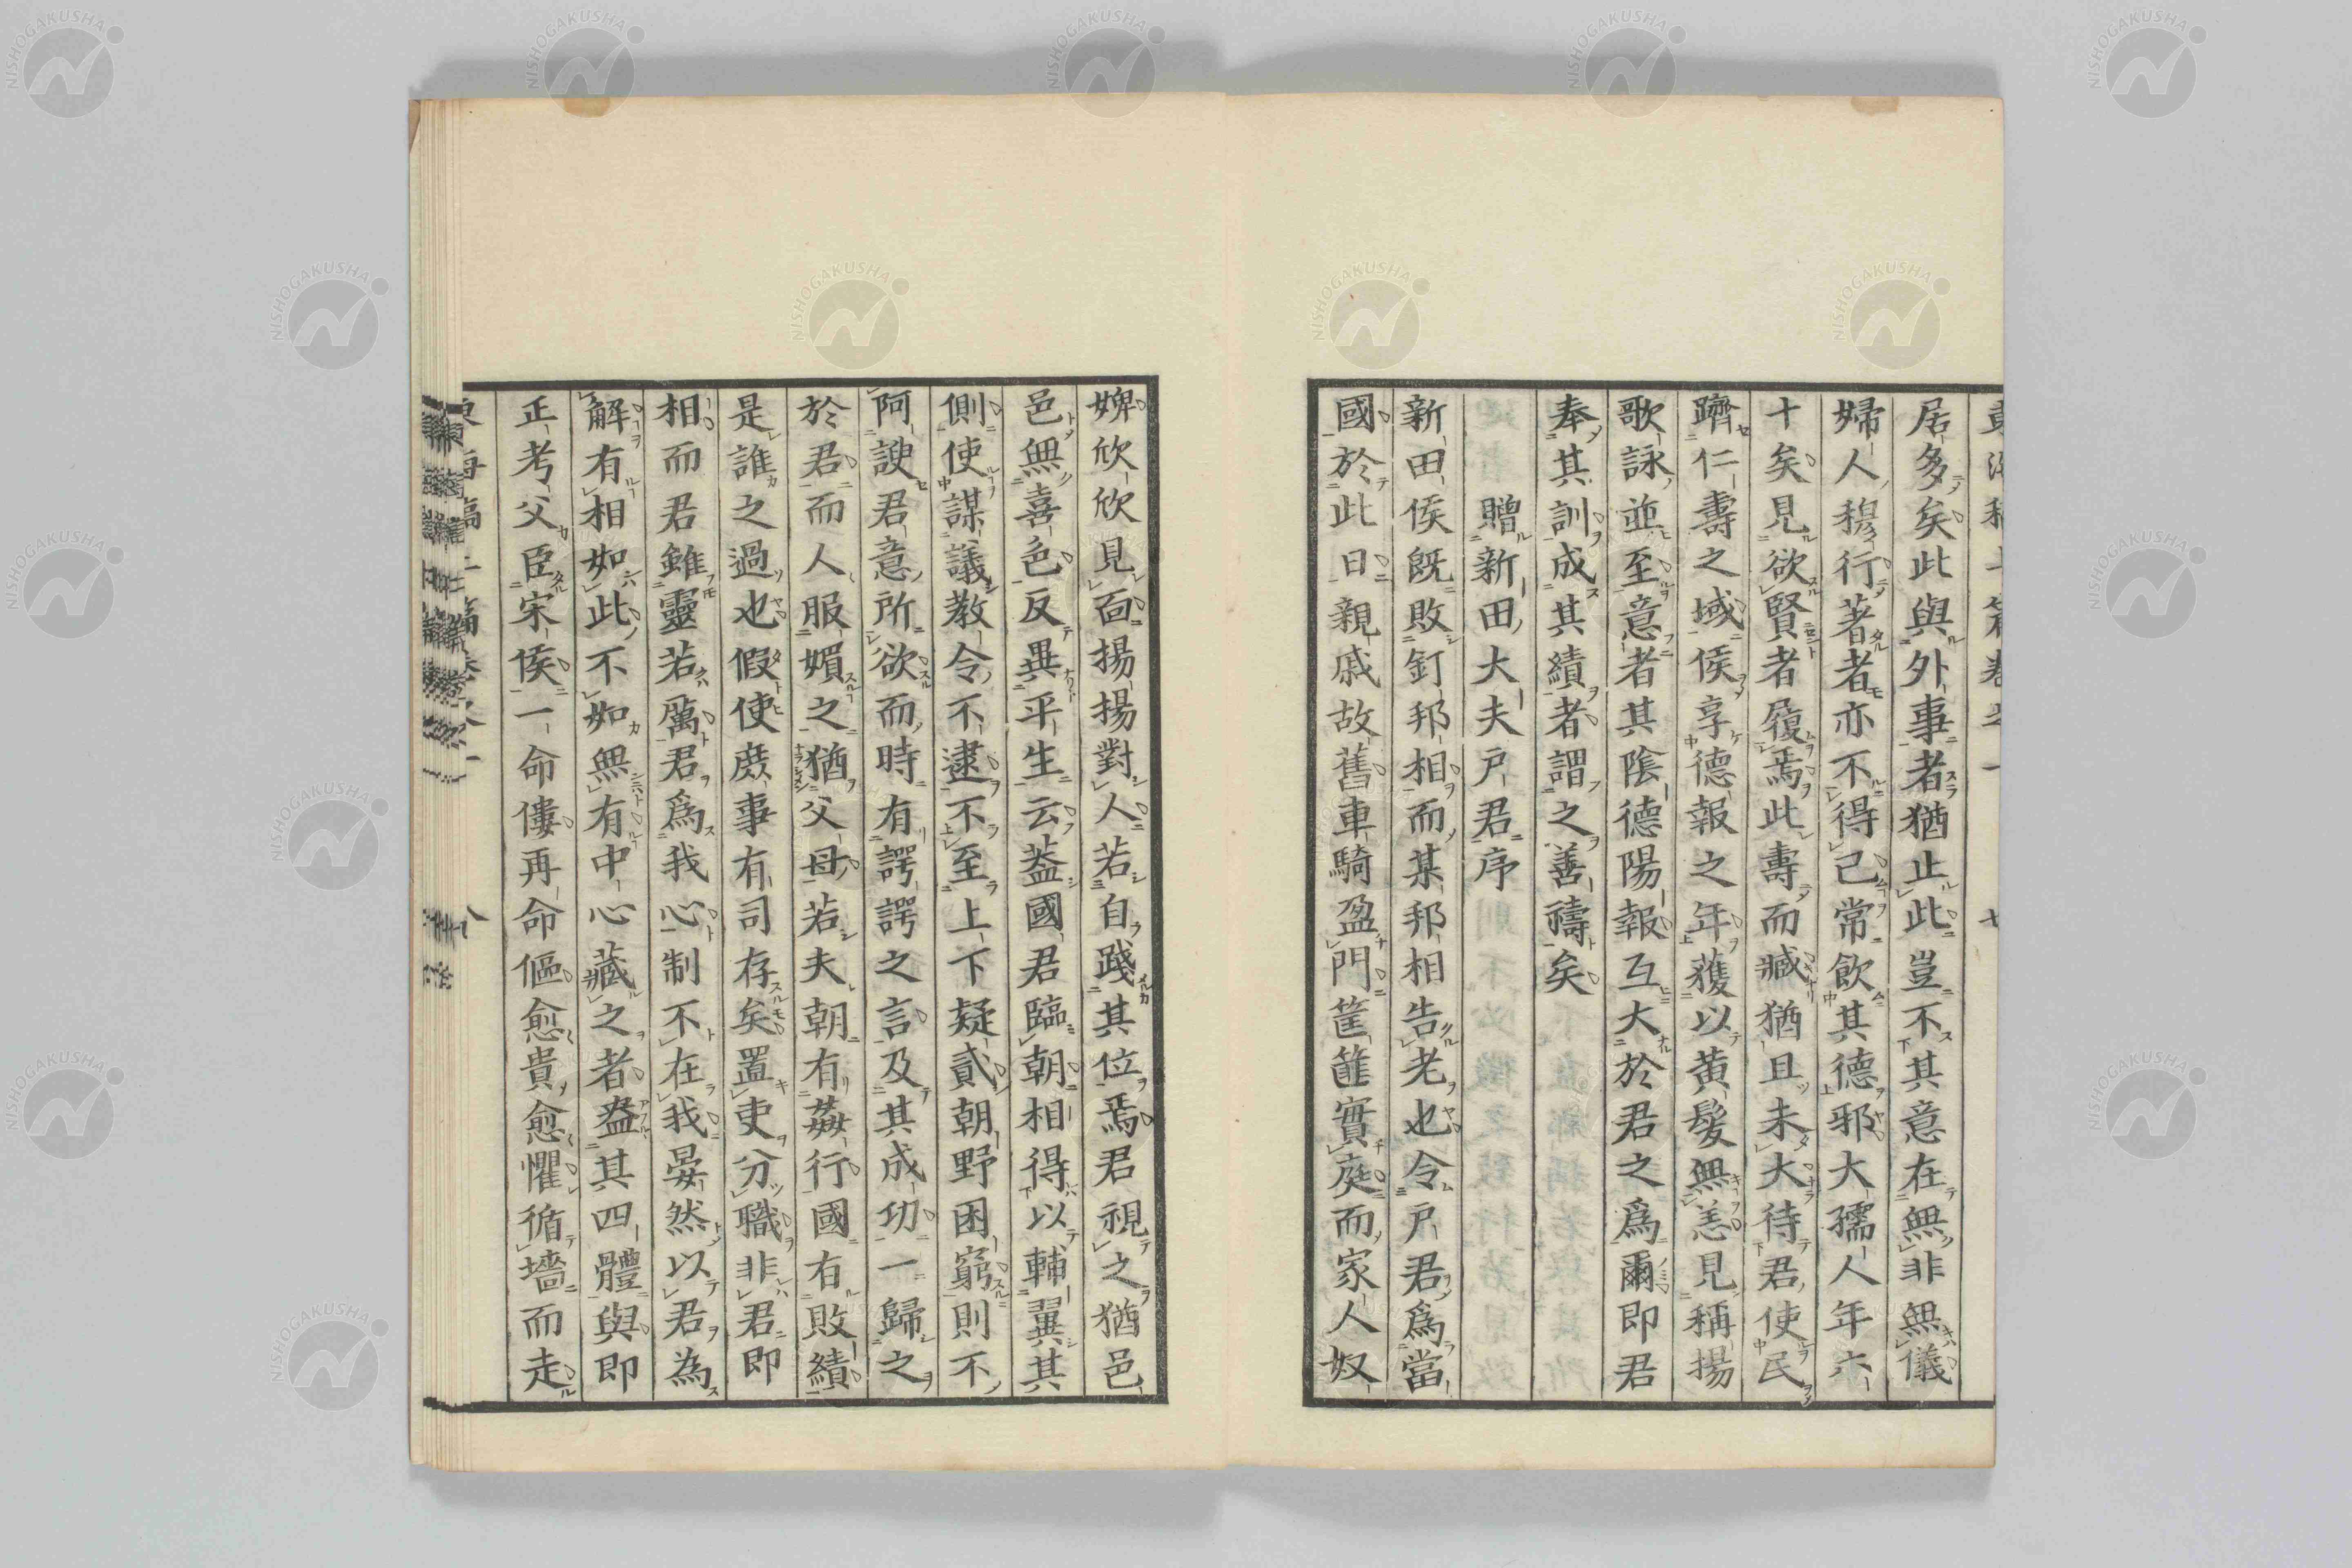 居多矣此與外事者猶止此豈不其意在無非無儀
婦人穆行著者亦不得已常飲其德邪大孺人年六
十矣見欲賢者履焉此壽而臧猶且未大待君使民
躋仁壽之域侯享德報之年獲以黄髮無恙見稱揚
歌詠並至意者其陰德陽報互大於君之爲爾即君
奉其訓成其績者謂之善禱矣
贈新田大夫戸君序
新田侯既敗釘邦相而某邦相告老也令戸君爲當
國於此日親戚故舊車騎盈門筐篚實庭而家人奴
婢欣欣見面揚揚對人若自踐其位焉君視之猶邑
邑無喜色反異平生云蓋國君臨朝相得以輔翼其
側使謀議教令不逮不至上下疑貳朝野困窮則不
阿諛君意所欲而時有諤諤之言及其成功一歸之
於君而人服媚之猶父母若夫朝有姦行國有敗績
是誰之過也假使庶事有司存矣置吏分職非君即
相而君雖靈若厲君爲我心制不在我晏然以君為
解有相如此不如無有中心藏之者盎其四體與即
正考父臣宋侯一命僂再命傴愈貴愈懼循墻而走
NISHOGAKUSHA